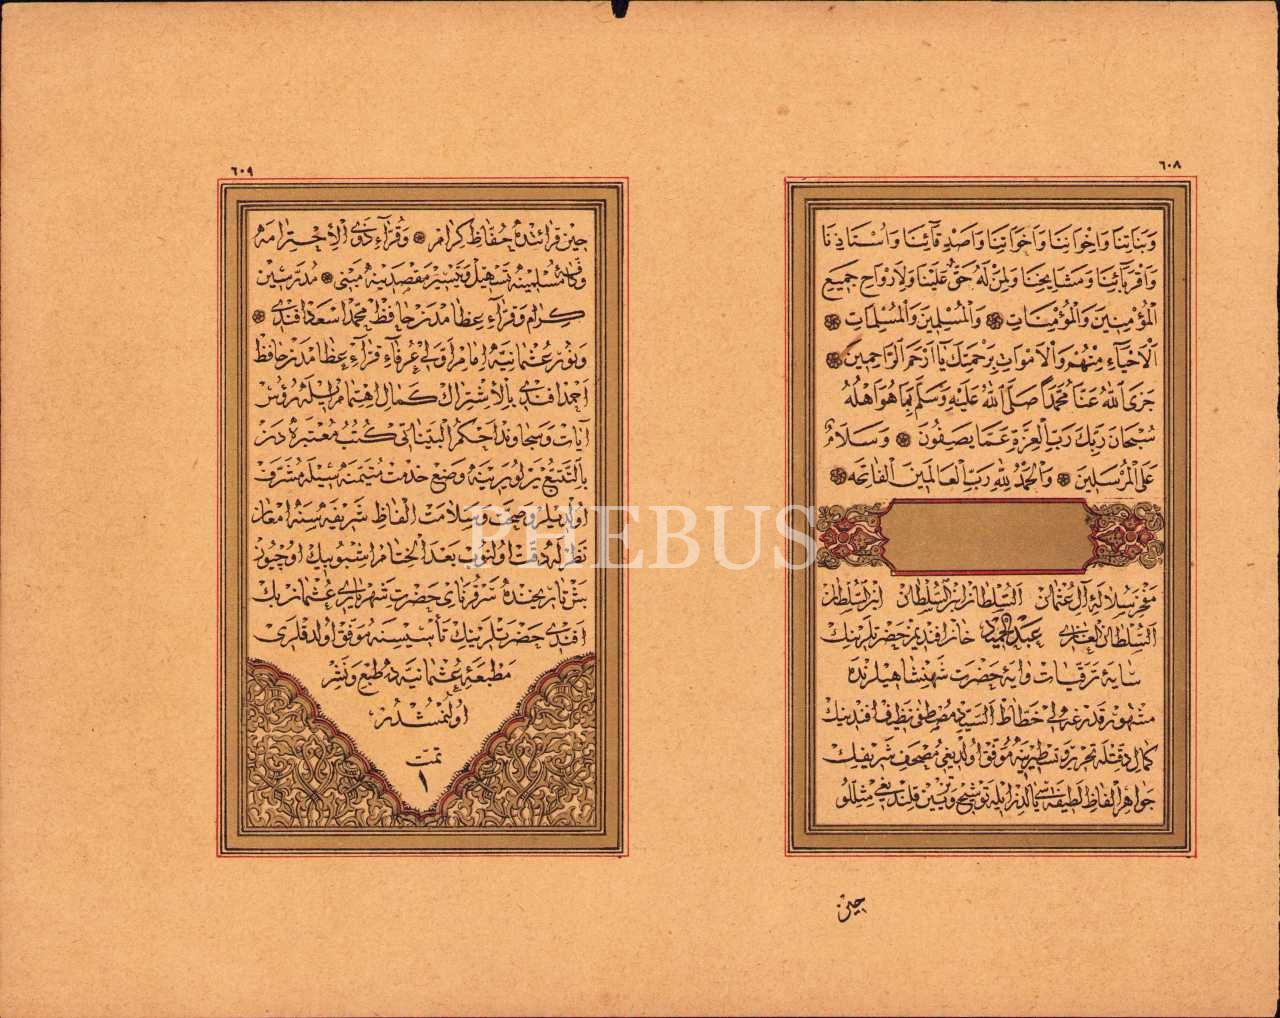 ٦٠٨
وَبَنَاتِنَا وَاِخْوَانِنَا وَاَخَوَاتِنَا وَاَصْدِقَائِنَا وَاُسْتَاذِنَا
وَاَقْرِبَائِنَا وَمَشَايِخِنَا وَلِمَنْ لَهُ حَقٌّ عَلَيْنَا وَلِاَرْوَاحِ جَمِيعِ
الْمُؤْمِنِينَ وَالْمُؤْمِنَاتِ ۞ وَالْمُسْلِمِينَ وَالْمُسْلِمَاتِ ۞
اَلْاَحْيَاءِ مِنْهُمْ وَالْاَمْوَاتِ بِرَحْمَتِكَ يَا اَرْحَمَ الرَّاحِمِينَ ۞
جَزَى اللّٰهُ عَنَّا مُحَمَّدًا صَلَّى اللّٰهُ عَلَيْهِ وَسَلَّمَ بِمَا هُوَ اَهْلُهُ
سُبْحَانَ رَبِّكَ رَبِّ الْعِزَّةِ عَمَّا يَصِفُونَ ۞ وَسَلَامٌ
عَلَى الْمُرْسَلِينَ ۞ وَالْحَمْدُ لِلّٰهِ رَبِّ الْعَالَمِينَ الْفَاتِحَه ۞
سلالهٔ آل عثمان السلطان ابن السلطان ابن السلطان
السلطان الغازی عبد الحمید خان افندیمز حضرتلرینك
سایهٔ ترقیات وایهٔ حضرت شهنشاهیلرنده
مشهور خطاط السید مصطفی نظیف افندینك
کمال دقتله تحریر موفق اولدیغی مصحف شریفك
جواهر الفاظ لطیفه قلندیغی مثللو
جین
٦٠٩
جین قرائنده حفاظ کرام ۞ وقراء ذوی الاحترامه
وکافهٔ مسلمینه تسهیل وتیسیر مقصدینه مبنی ۞ مدرسین
کرام وقراء عظامدن حافظ محمد اسعد افندی ۞
ونور عثمانیه امام اولی قراء عظامدن حافظ
احمد افندی بالاشتراك کمال اهتمام ایله رؤس
آیات وسجاوند احکم البیناتی کتب معتبره دن
بالتتبع وضع خدمت متیمنه سیله مشرف
اولدیلر وصحت وسلامت الفاظ شریفه سنه امعان
نظر له دقت اولنوب بعد الختام اشبو بیك اوچیوز
تاریخنده حضرت شهریاری عثمان بك
افندی حضرتلرینك تأسیسنه موفق اولدقلری
مطبعهٔ عثمانیه ده طبع ونشر
اولنمشدر
تمت
١
PHEBUS